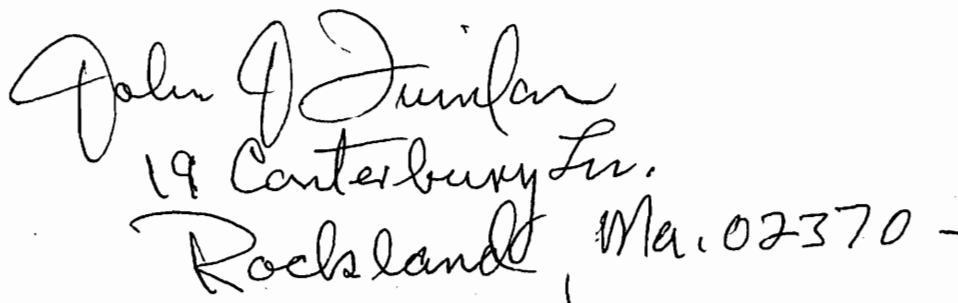 John J Quinlan
19 Canterbury Ln.
Rockland, Ma. 02370 -